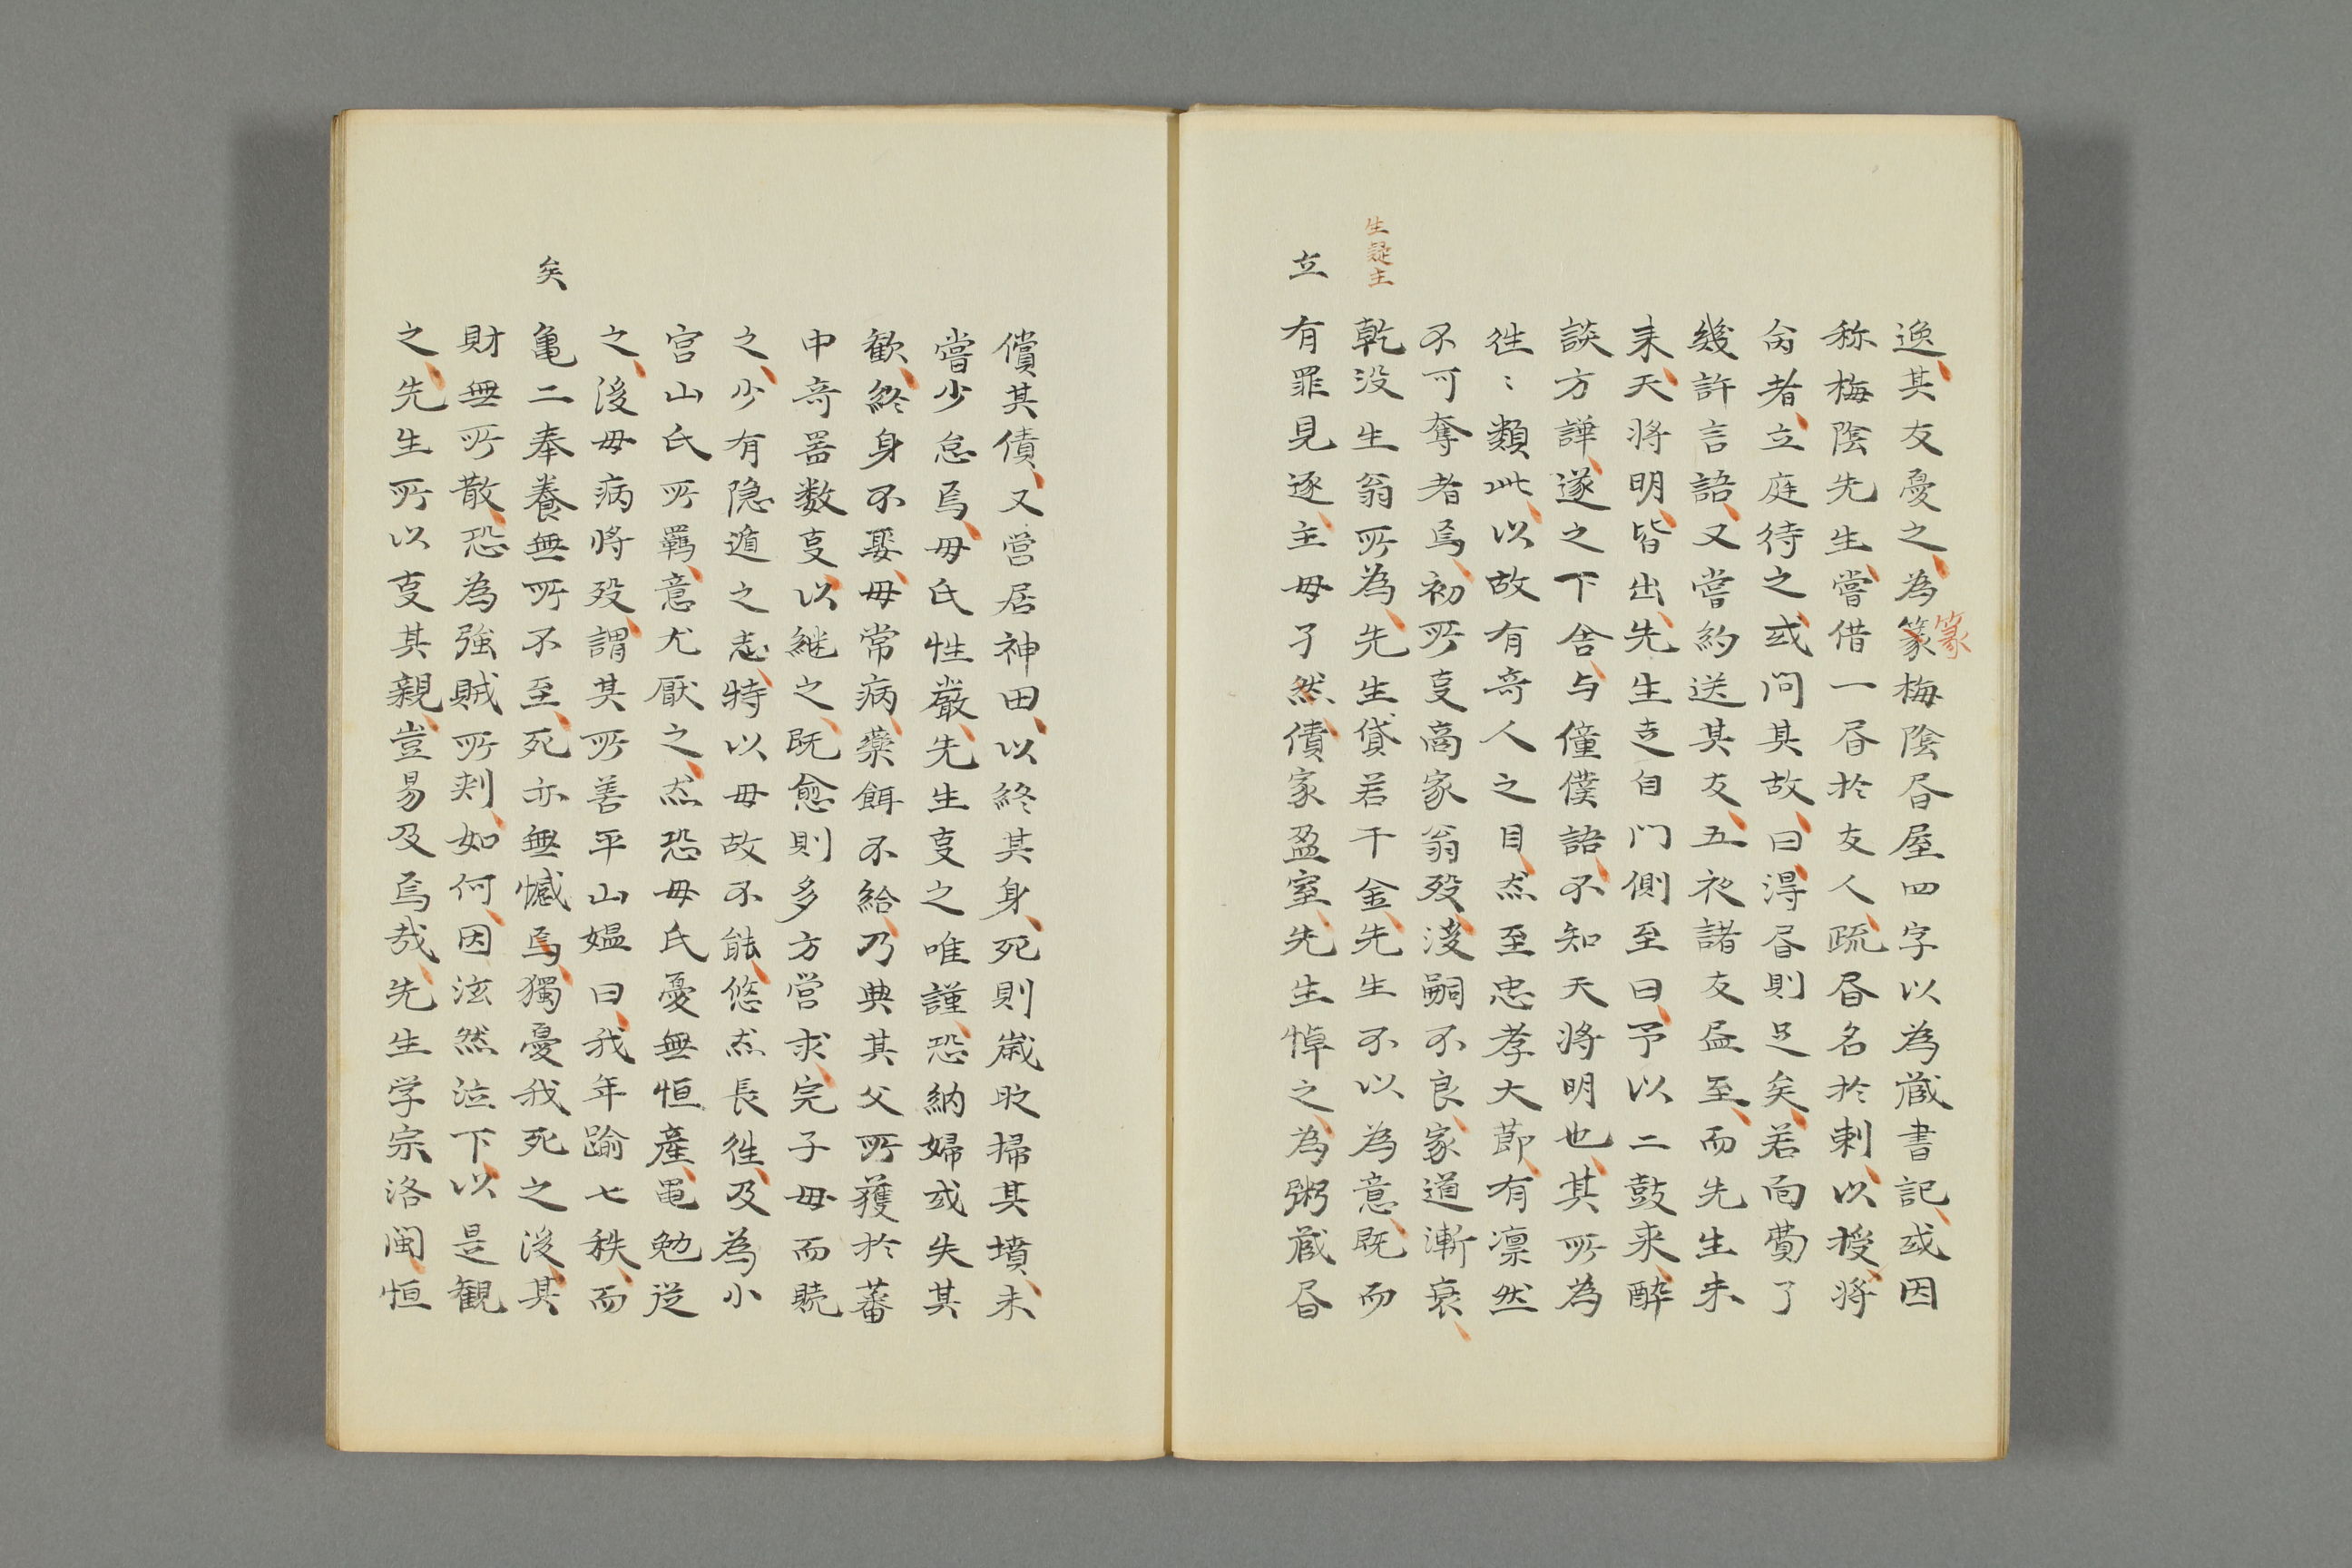 逸其友憂之為篆梅陰㫺屋四字以為蔵書記或因
篆
称梅陰先生嘗借一㫺於友人疏㫺名於刺以授將
肏者立庭待之或問其故曰淂㫺則足矣若向費了
幾許言語又嘗約送其友五夜諸友盃至而先生未
来天将明皆出先生走自門側至曰予以二鼓来酔
談方譁遂之下舎与僮僕語不知天将明也其所為
徃〻類此以故有奇人之目然至忠孝大莭有凛然
不可奪者焉初所㕝啇家翁殁後嗣不良家道漸衰
生疑主
乾没生翁所為先生貸若干金先生不以為意既而
立
有罪見逐主毋孑然債家盈室先生悼之為粥蔵㫺
償其債又営居神田以終其身死則歳時掃其墳未
嘗少怠焉毋氏性嚴先生㕝之唯謹恐納婦或失其
歓終身不娶毋常病藥餌不給乃典其父所獲於蕃
中奇噐数㕝以継之既愈則多方営求完子毋而贖
之少有隠遁之志特以毋故不能悠然長徃及為小
宮山氏所羈意尤厭之然恐毋氏憂無恒産黽勉従
之後毋病将殁謂其所善平山媼曰我年踰七秩而
矣
亀二奉養無所不至死亦無憾焉獨憂我死之後其
財無所散恐為強賊所刦如何因泫然泣下以是観
之先生所以㕝其親豈易及焉哉先生学宗洛閩恒